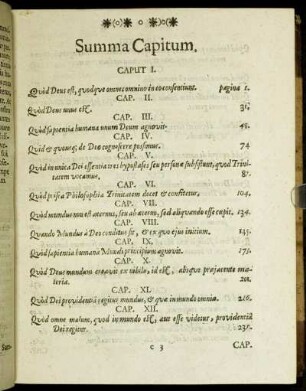 Summa Capitum.
CAPUT I.
Quid Deus est, quodque omnes omnino in eo consentiunt. pagina 1.
CAP. II.
Quod Deus unus est. 31.
CAP. III.
Quod sapientia humana unum Deum agnovit. 48.
CAP. IV.
Quid & quousque de Deo cognoscere possumus. 74
CAP. V.
Quod in unica Dei essentia tres hypostases seu personæ subsistunt, quod Trini-
tatem vocamus. 81.
CAP. VI.
Quod prisca Philosophia Trinitatem docet & confitetur. 104.
CAP. VII.
Quod mundus non est æternus, seu ab æterno, sed aliquando esse cœpit. 134.
CAP. VIII.
Quando Mundus a Deo conditus sit, & ex quo ejus initium. 145.
CAP. IX.
Quod sapientia humana Mundi principium agnovit. 175.
CAP. X.
Quod Deus mundum creavit ex nihilo, id est, absque præjacente ma-
teria. 201.
CAP. XI.
Quod Dei providentia regitur mundus, & quæ in mundo omnia. 216.
CAP. XII.
Quod omne malum, quod in mundo est, aut esse videtur, providentia
Dei regitur. 231.
c 3 CAP.